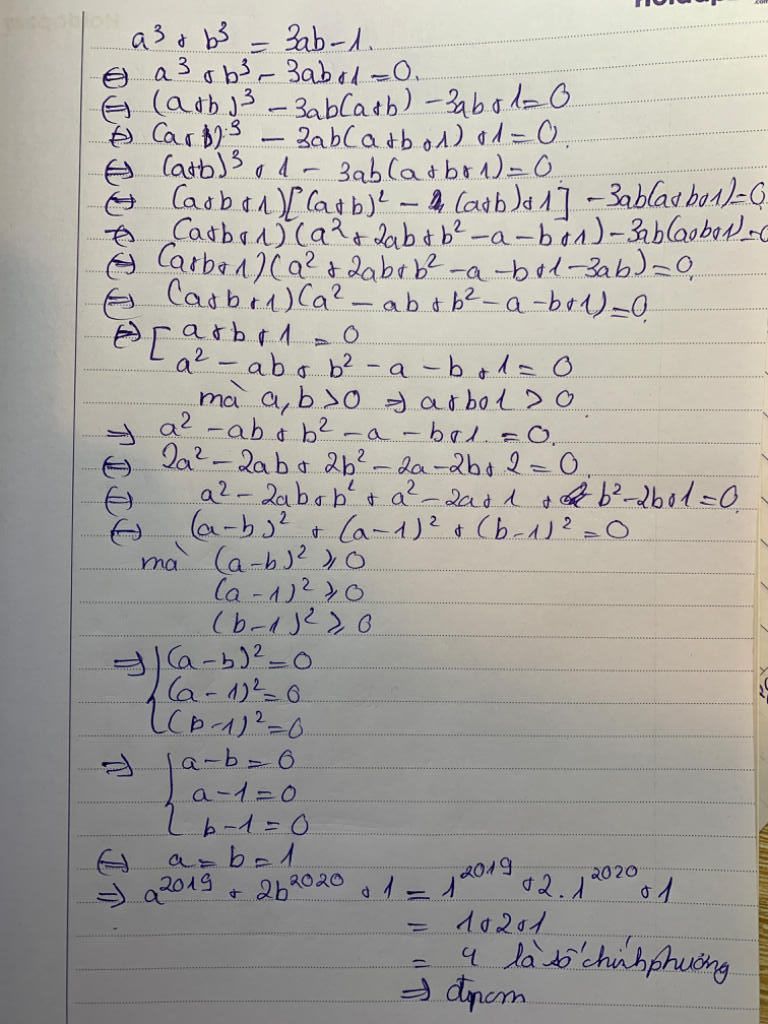 a³ + b³ = 3ab - 1.
⇔ a³ + b³ - 3ab + 1 = 0.
⇔ (a+b)³ - 3ab(a+b) - 3ab + 1 = 0
⇔ (a+b)³ - 3ab(a+b+1) + 1 = 0.
⇔ (a+b)³ + 1 - 3ab(a+b+1) = 0.
⇔ (a+b+1)[(a+b)² - (a+b)+1] - 3ab(a+b+1) = 0.
⇔ (a+b+1)(a² + 2ab + b² - a - b + 1) - 3ab(a+b+1) = 0
⇔ (a+b+1)(a² + 2ab + b² - a - b + 1 - 3ab) = 0.
⇔ (a+b+1)(a² - ab + b² - a - b + 1) = 0.
⇔ [ a + b + 1 = 0
a² - ab + b² - a - b + 1 = 0
mà a, b > 0 ⇒ a+b+1 > 0
⇒ a² - ab + b² - a - b + 1 = 0.
⇔ 2a² - 2ab + 2b² - 2a - 2b + 2 = 0.
⇔ a² - 2ab + b² + a² - 2a + 1 + b² - 2b + 1 = 0.
⇔ (a-b)² + (a-1)² + (b-1)² = 0
mà (a-b)² ⩾ 0
(a-1)² ⩾ 0
(b-1)² ⩾ 0
⇒ { (a-b)² = 0
(a-1)² = 0
(b-1)² = 0
⇒ { a-b = 0
a-1 = 0
b-1 = 0
⇔ a = b = 1
⇒ a²⁰¹⁹ + 2b²⁰²⁰ + 1 = 1²⁰¹⁹ + 2.1²⁰²⁰ + 1
= 1+2+1
= 4 là số chính phương
⇒ đpcm